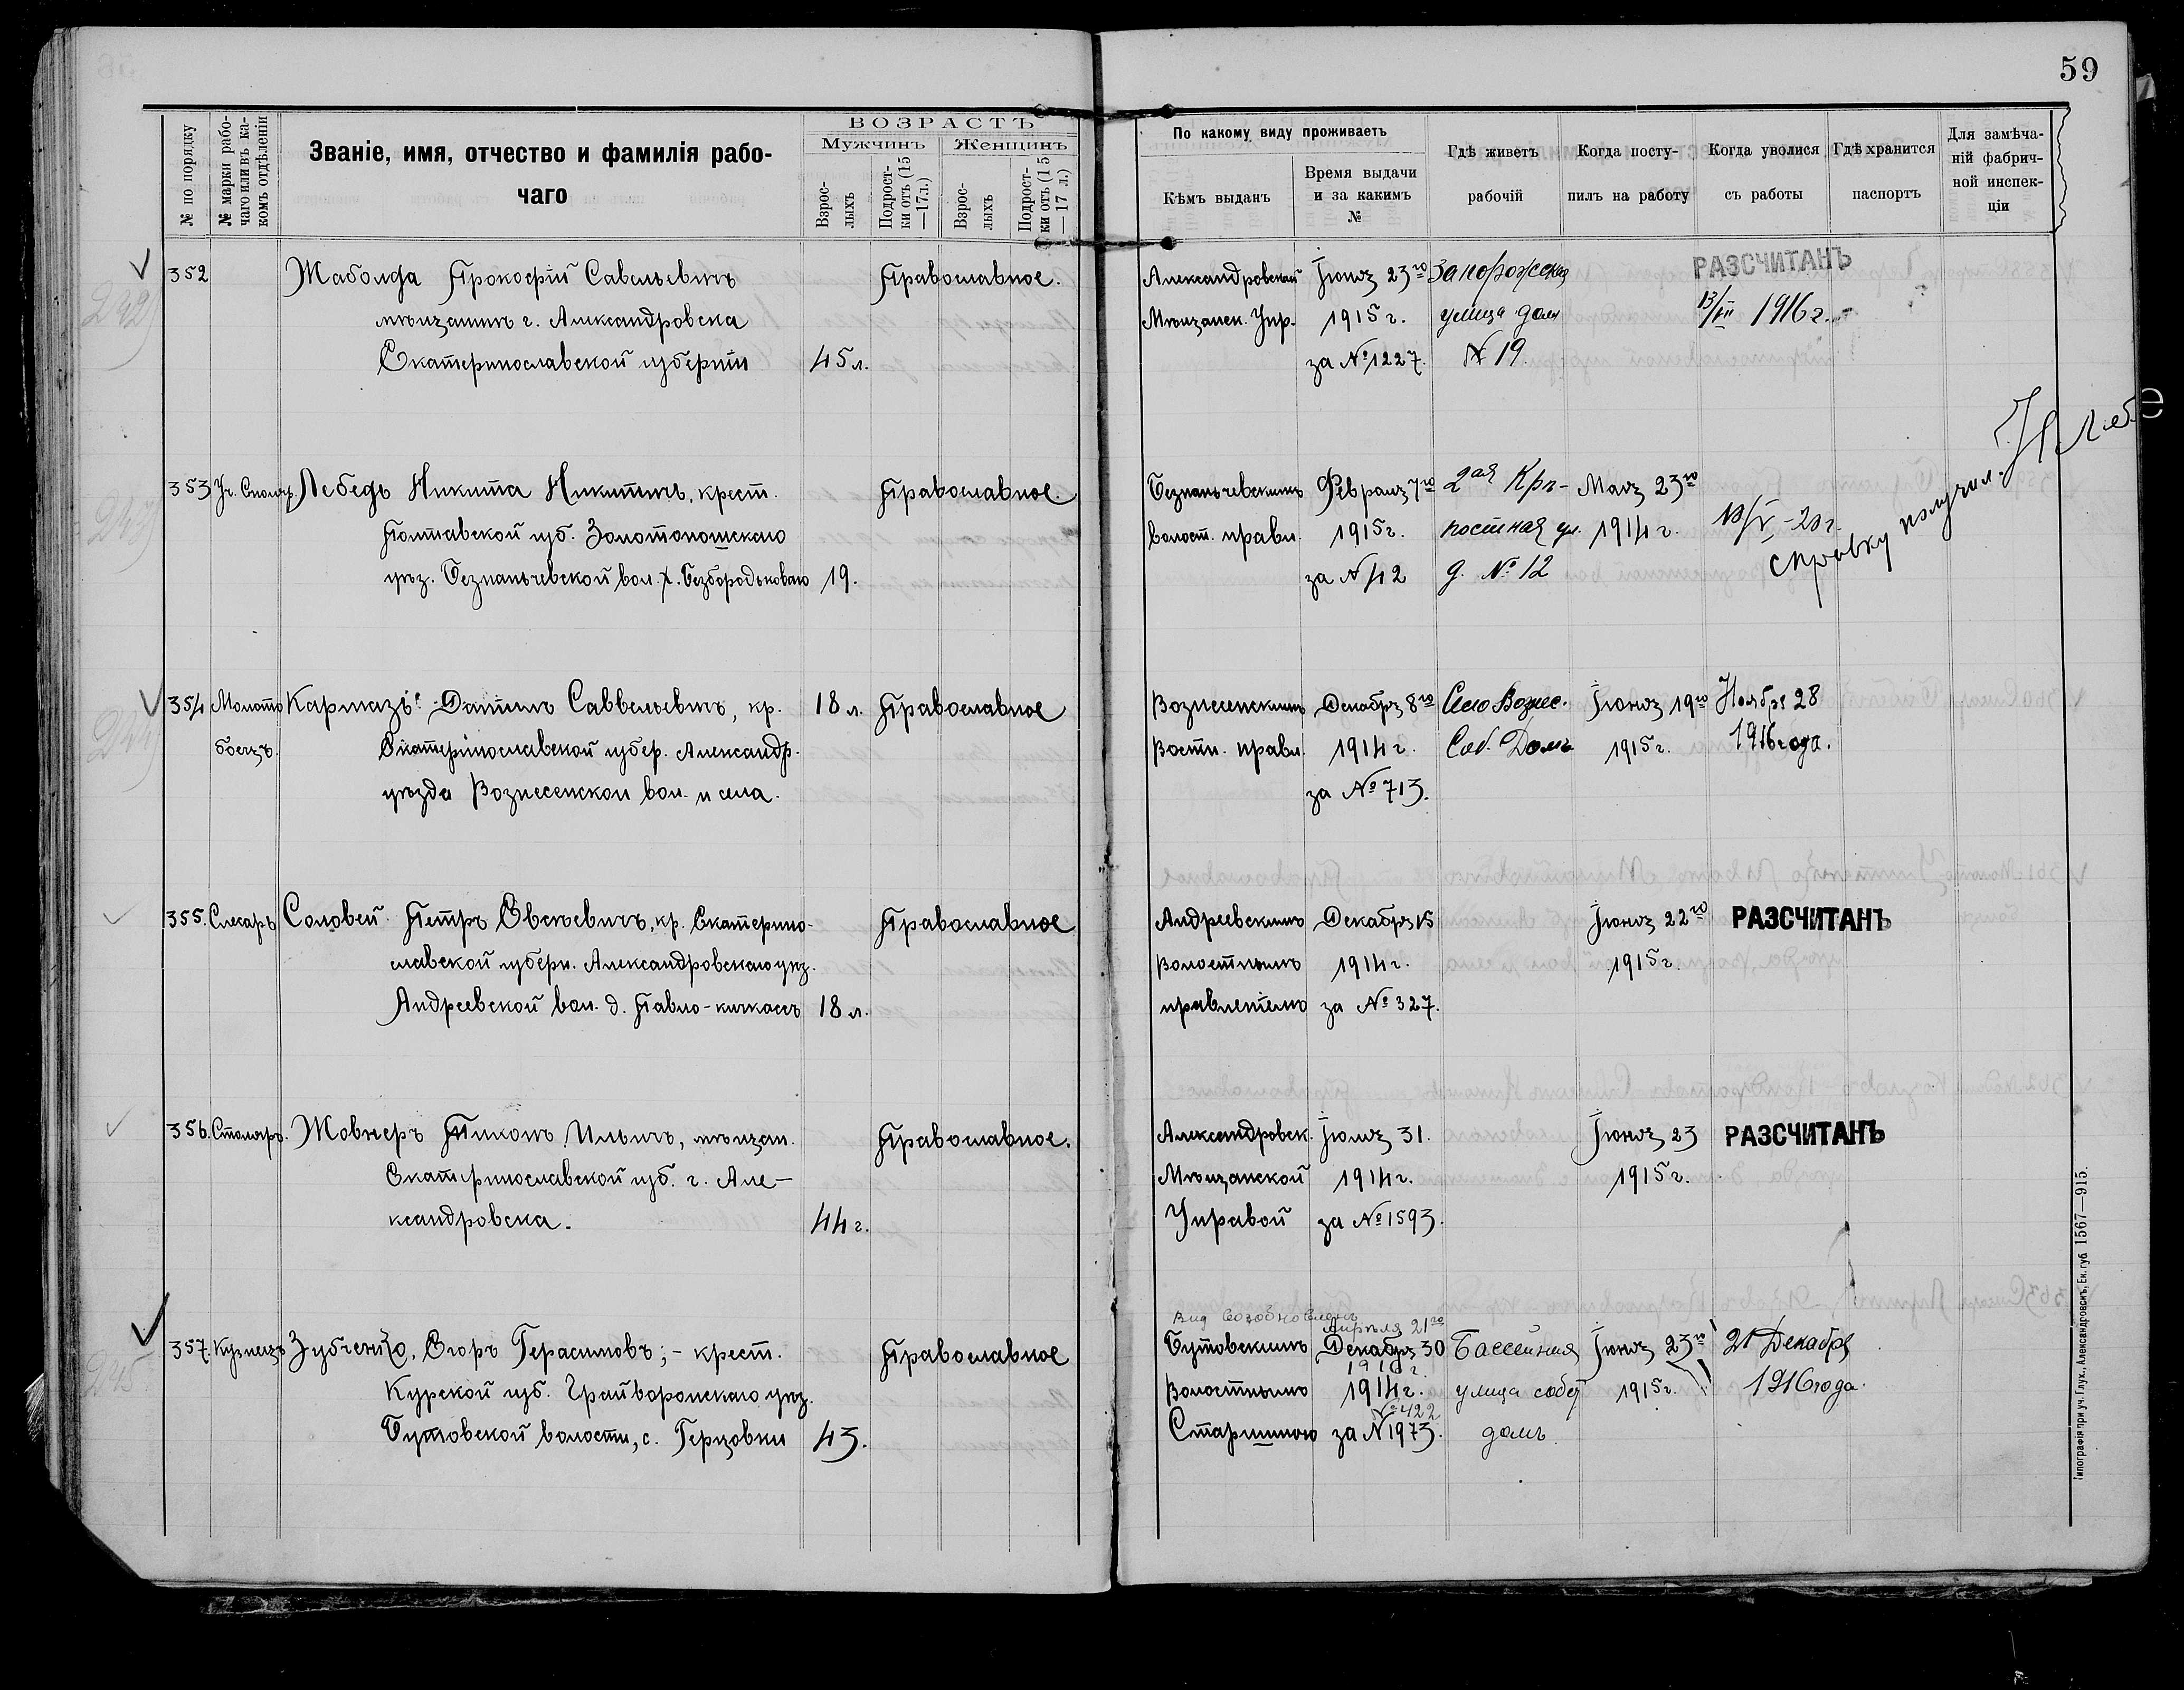 59
№ по порядку
№ марки рабо-
чаго или въ ка-
комъ отдѣленіи
Званіе, имя, отчество и фамилія рабо-
чаго
ВОЗРАСТЪ
Мужчинъ
Женщинъ
Взрос-
лыхъ
Подрост-
ки отъ (15
—17 л.)
Взрос-
лыхъ
Подрост-
ки отъ (15
—17 л.)
По какому виду проживаетъ
Кѣмъ выданъ
Время выдачи
и за какимъ
№
Гдѣ живетъ
рабочій
Когда посту-
пилъ на работу
Когда уволися
съ работы
Гдѣ хранится
паспортъ
Для замѣча-
ній фабрич-
ной инспек-
ціи
352
Прокофій Савельевичъ
мѣщанинъ г. Александровска
Екатеринославской губерніи
45 л.
Православное.
Александровской
Мѣщанск. Упр.
Іюня 23го
1915 г.
за № 1227.
Запорожская
улица домъ
№ 19.
РАЗСЧИТАНЪ
13/VII 1916 г.
353
Уч. Столяр.
Лебедь Никита Никитичъ, крест.
Полтавской губ. Золотоношскаго
уѣз. Безпальчевской вол. х. Безбородьковаго
19.
Православное.
Безпальчевскимъ
волост. правл.
Февраля 7го
1915 г.
за № 42
2ая Крѣ-
постная ул.
д. № 12
Мая 23го
1914 г.
18/V - 20 г.
справку получил. Н Леб
354
Молото
боецъ.
Кармазь Данiилъ Саввельевичъ, кр.
Екатеринославской губер. Александр.
уѣзда Вознесенской вол. и села.
18 л.
Православное
Вознесенскимъ
Востн. правл.
Декабря 8го
1914 г.
за № 713.
Село Вознес.
Соб. Домъ
Іюня 19го
1915 г.
Ноября 28
1916 года.
355.
Слесарь
Соловей Петръ Евсѣевичъ, кр. Екатерино-
славской губерн. Александровскаго уѣз.
Андреевской вол. д. Павло-кичкасъ
18 л.
Православное
Андреевскимъ
Волостнымъ
правленіемъ
Декабря 15
1914 г.
за № 327.
Іюня 22го
1915 г.
РАЗСЧИТАНЪ
356.
Столяръ.
Жовнеръ Тихонъ Ильичъ, мѣщан.
Екатеринославской губ. г. Але-
ксандровска.
44 г.
Православное.
Александровск.
Мѣщанской
Управой
Іюля 31.
1914 г.
за № 1593.
Іюня 23
1915 г.
РАЗСЧИТАНЪ
357.
Кузнецъ
Зубченко, Егоръ Герасимовъ; - крест.
Курской губ. Грайворонскаго уѣз.
Бутовской волости, с. Герцовки
43.
Православное
Вид возобновленъ
Бутовскимъ
Волостнымъ
Старшиною
Апрѣля 21го
Декабря 30
1916 г.
1914 г.
№ 422
за № 1973.
Бассейная
улица собст
домъ
Іюня 23го
1915 г.
21 Декабря
1916 года.
Типографія при уч. Глух., Александровскъ, Ек. губ. 1567—915.